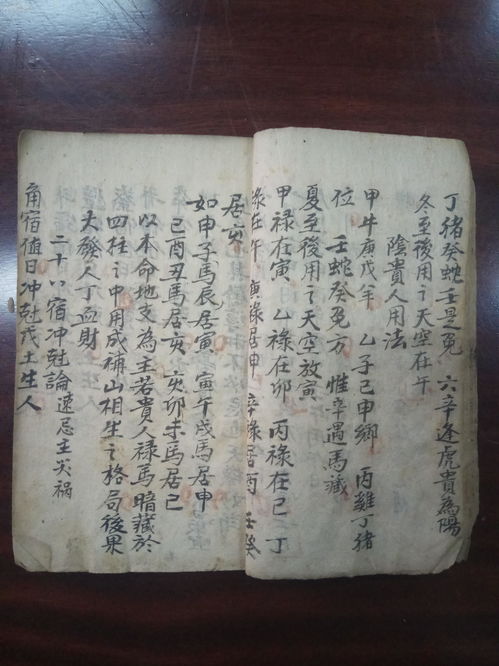 丁猪癸蛇壬是兎 六辛逢虎貴為陽
冬至後用之天空在午
陰貴人用法
甲牛庚戊羊 乙子己申鄉 丙雞丁猪
位 壬蛇癸兎方 惟辛遇馬藏
夏至後用之天空放寅
甲禄在寅 乙禄在卯 丙禄在巳 丁
禄在午 庚禄居申 辛禄居酉 壬癸
居亥
如申子馬辰居寅 寅午戌馬居申
巳酉丑馬居亥 亥卯未馬居巳
以本命地支為主若貴人禄馬暗藏於
四柱之中用成補山相生之格局後果
大發人丁血財
二十八宿冲尅論 速忌主災禍
角宿值日冲尅戊土生人